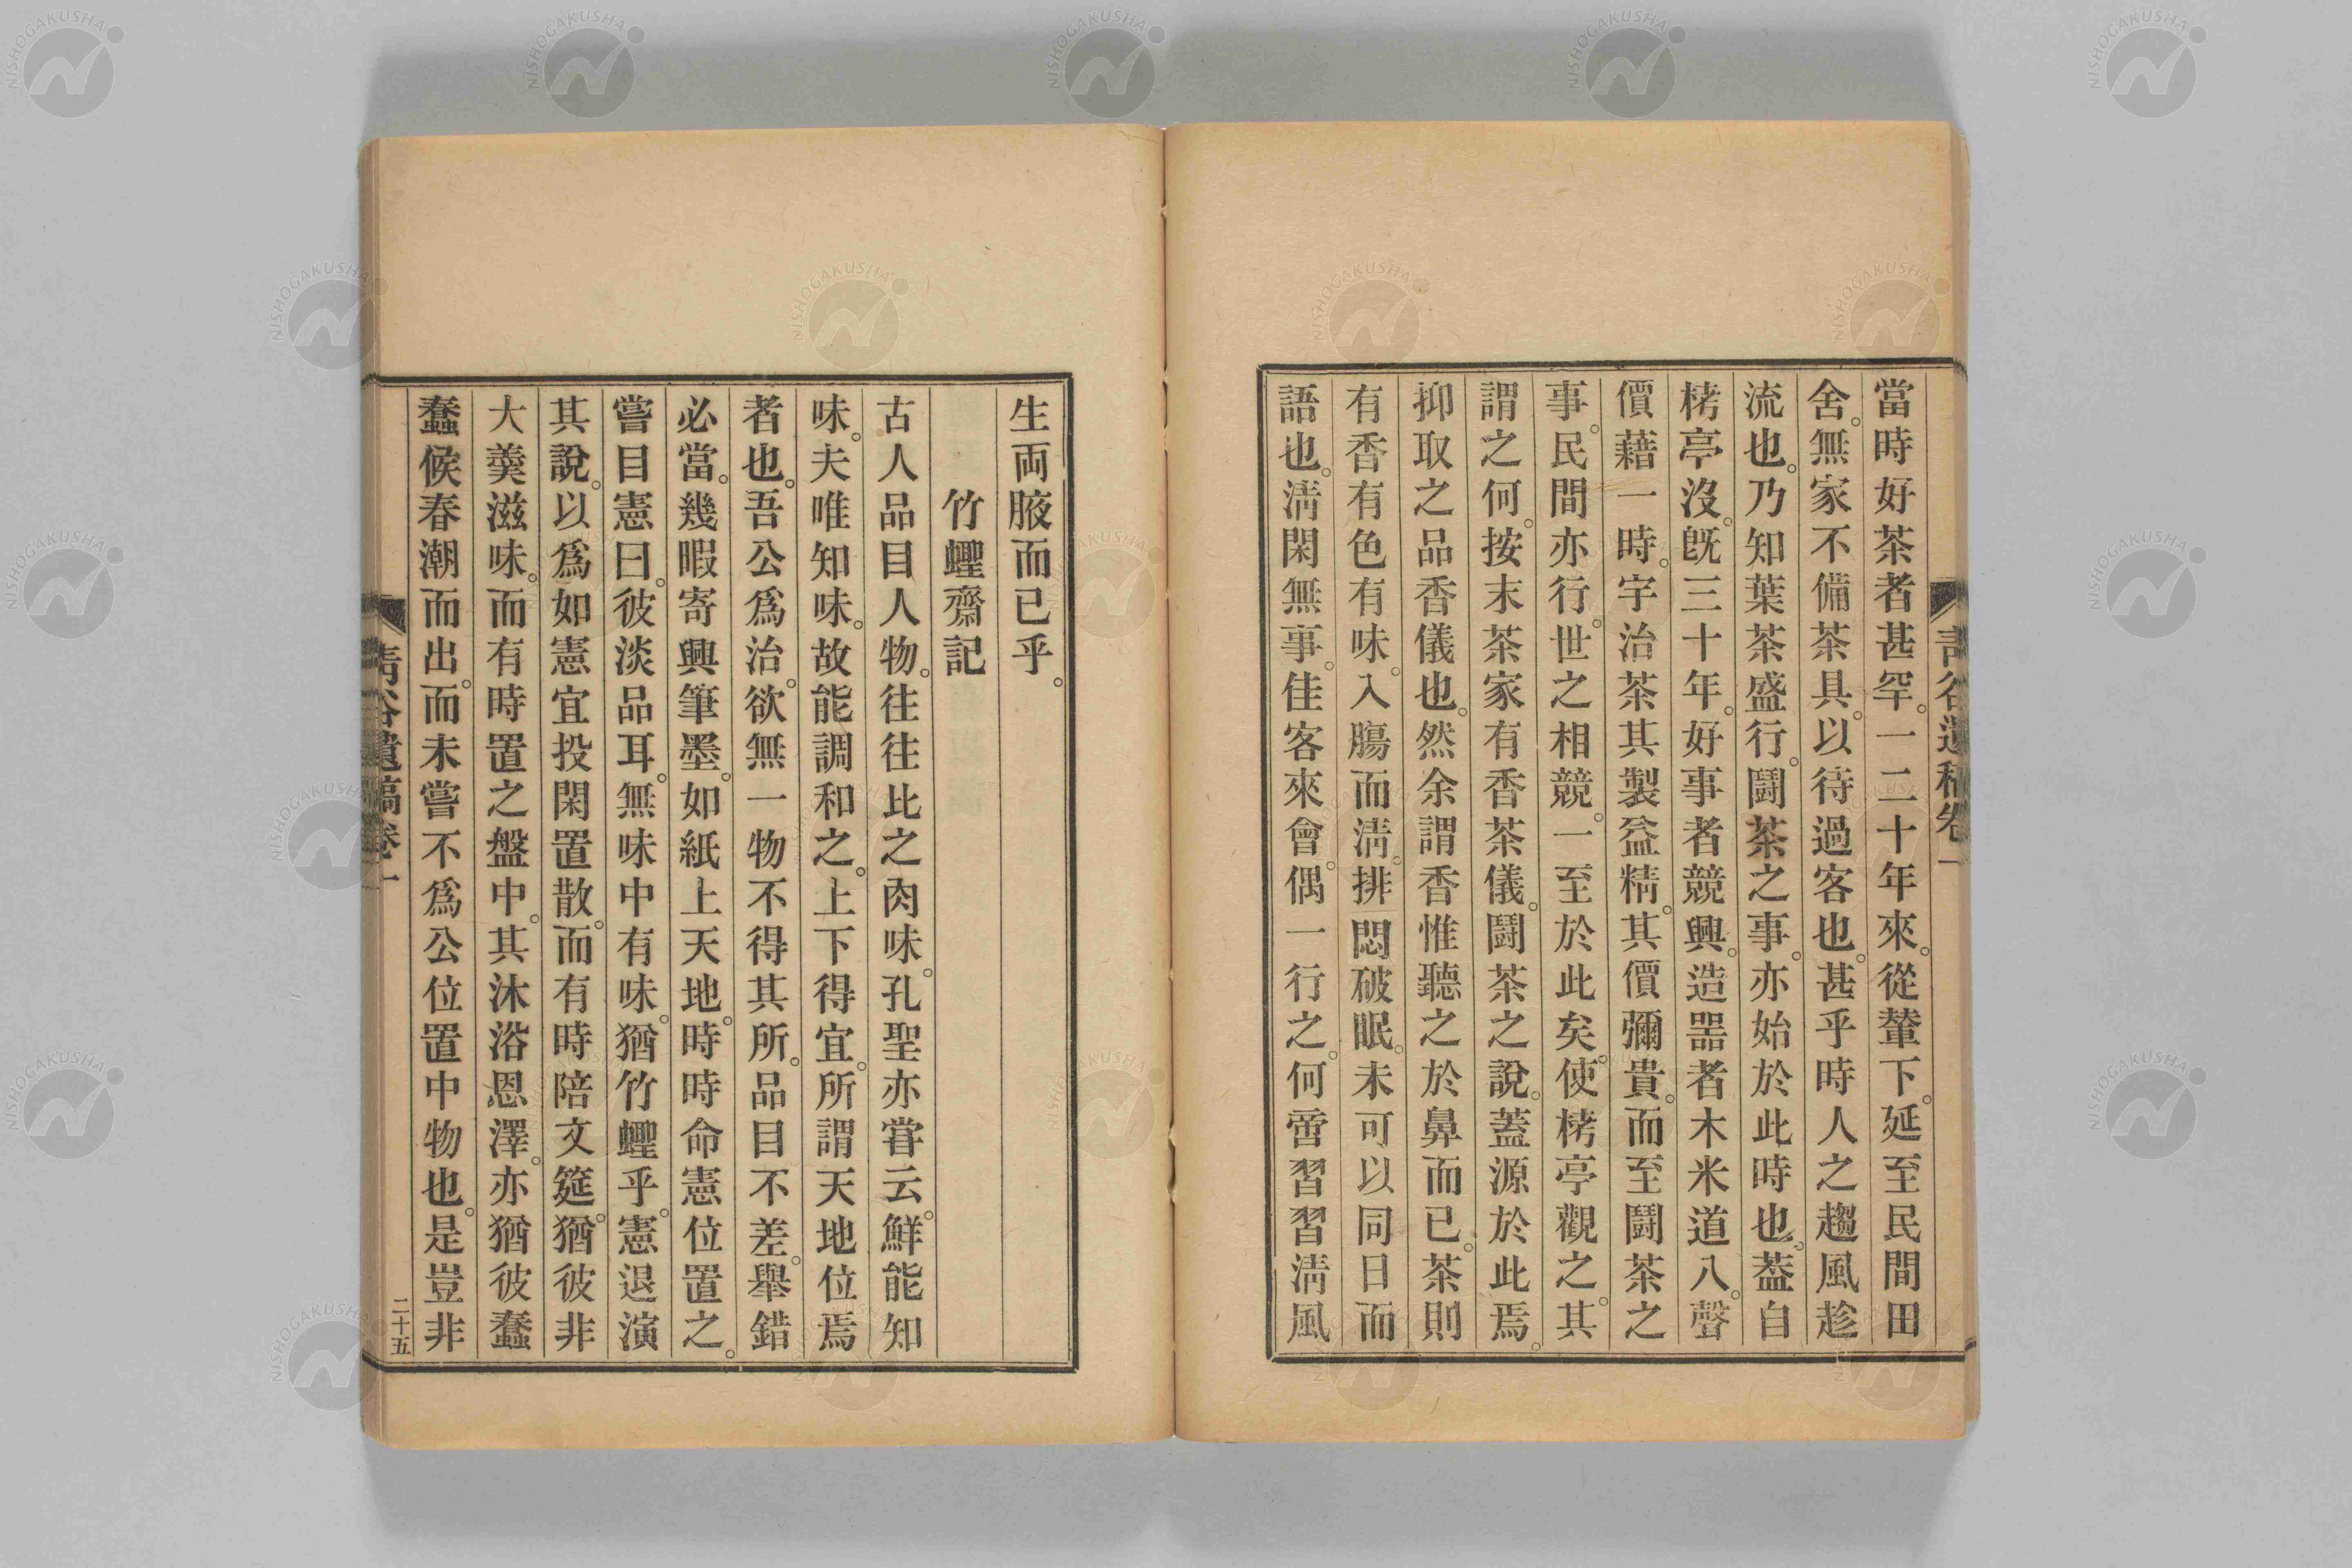 當時好茶者甚罕。一二十年來。從輦下。延至民間田
舍。無家不備茶具。以待過客也。甚乎時人之趨風趁
流也。乃知葉茶盛行。鬪茶之事。亦始於此時也。蓋自
栲亭沒。旣三十年。好事者競興。造噐者木米道八。聲
價藉一時。宇治茶其製益精。其價彌貴。而至鬪茶之
事。民間亦行。世之相競。一至於此矣。使栲亭觀之。其
謂之何。按末茶家有香茶儀。鬪茶之說。蓋源於此焉。
抑取之品香儀也。然余謂香惟聽之於鼻而已。茶則
有香有色有味。入膓而淸。排悶破眠。未可以同日而
語也。淸閑無事。佳客來會。偶一行之。何啻習習淸風
生両腋而已乎。
竹蟶齋記
古人品目人物。往往比之肉味。孔聖亦甞云。鮮能知
味。夫唯知味。故能調和之。上下得宜。所謂天地位焉
者也。吾公爲治。欲無一物不得其所。品目不差。舉錯
必當。幾暇寄興筆墨。如紙上天地。時時命憲位置之。
嘗目憲曰。彼淡品耳。無味中有味。猶竹蟶乎。憲退演
其說。以爲如憲宜投閑置散。而有時陪文筵。猶彼非
大羹滋味。而有時置之盤中。其沐浴恩澤。亦猶彼蠢
蠢候春潮而出。而未嘗不爲公位置中物也。是豈非
遺稿卷一
二十五
NISHOGAKUSHA